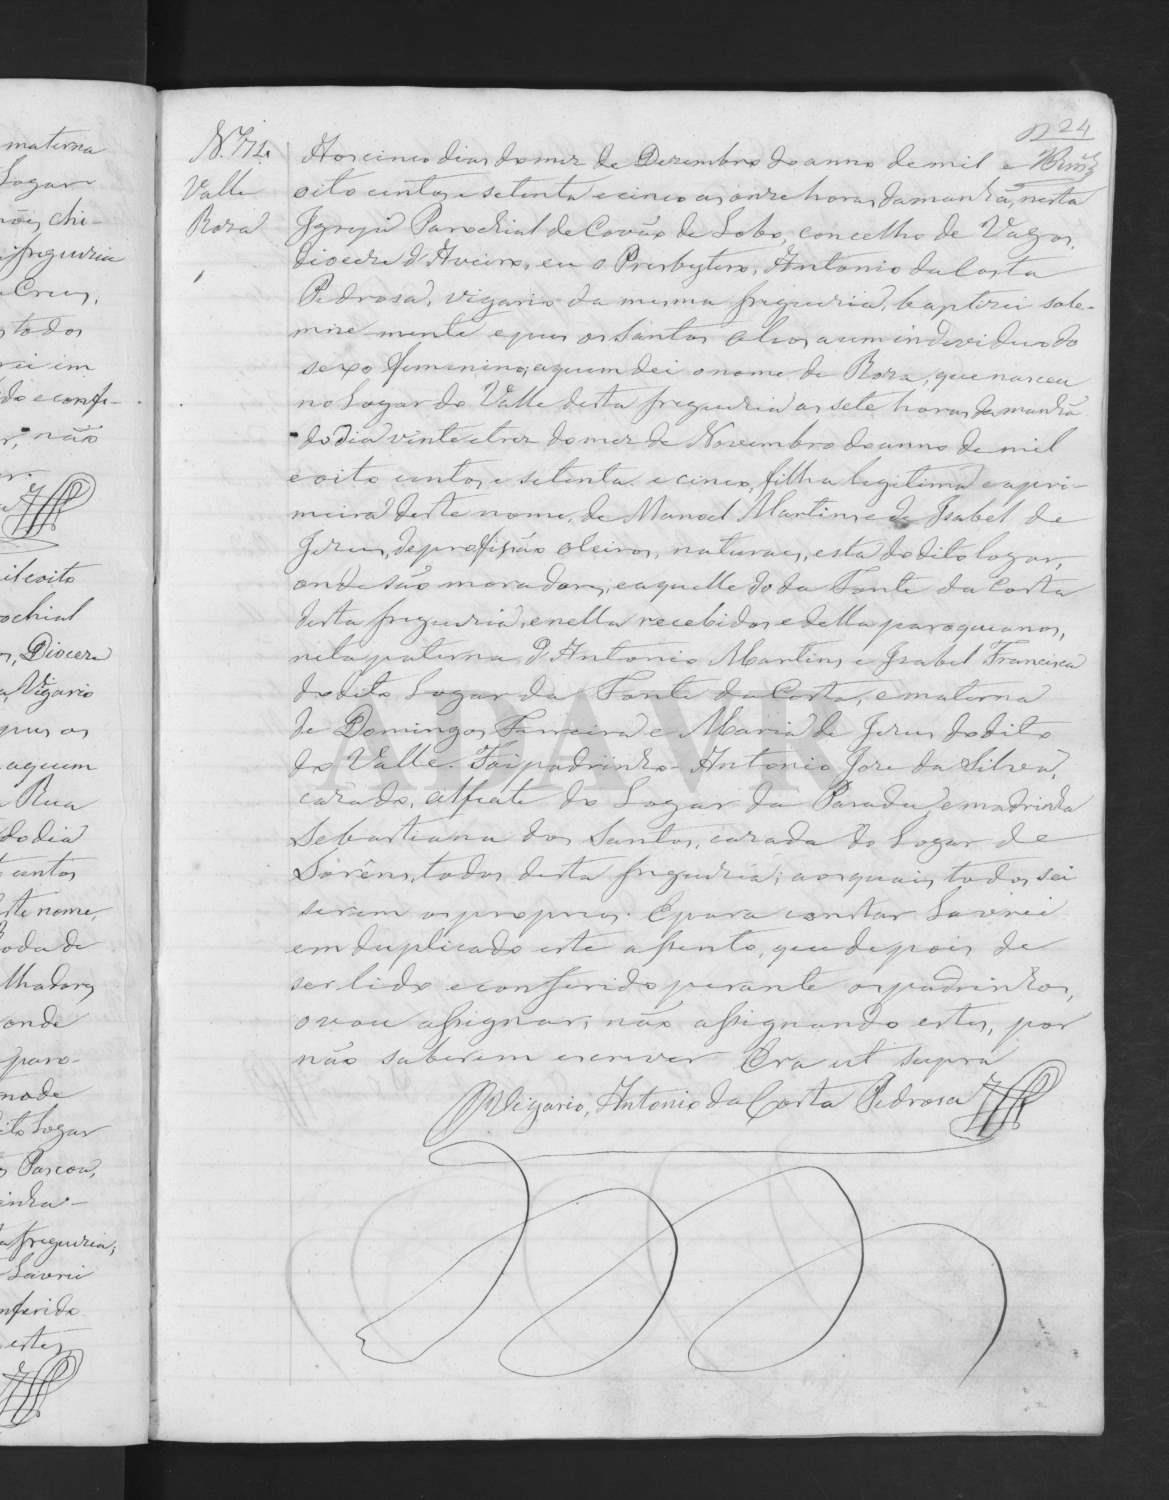 24
N.º 71.
Valle
Roza
Aos cinco dias do mez de Dezembro do anno de mil e
oito centos e setenta e cinco as onze horas da manhã, nesta
Igreja Parochial de Covão de Lobo, concelho de Vagos,
diocese d'Aveiro, eu o Presbytero, Antonio da Costa
Pedrosa, vigario da mesma freguezia, baptizei sole-
mne mente e puz os santos oleos a um individuo do
sexo femenino, a quem dei o nome de Roza, que nasceu
no Logar do Valle desta freguezia as sete horas da manhã
do dia vinte e trez do mez de Novembro do anno de mil
e oito centos e setenta e cinco, filha legitima e a pri-
meira deste nome, de Manoel Martins e de Isabel de
Jezus, de profissão oleiros, naturaes, esta do dito logar,
onde são moradores, e aquelle do da Fonte da Costa
desta freguezia, e nella recebidos e della paroquianos,
neta paterna d'Antonio Martins e Isabel Francisca
do dito Logar da Fonte da Costa, e materna
de Domingos Ferreira e Maria de Jezus do dito
do Valle. Foi padrinho Antonio Joze da Silva,
cazado, alfaiate do Logar da Parada, e madrinha
Sebastiana dos Santos, cazada do Logar de
todos desta freguezia; aos quaes todos sei
serem os proprios. E para constar lavrei
em duplicado este assento, que depois de
ser lido e conferido perante os padrinhos,
o vou assignar; não assignando estes, por
não saberem escrever Era ut supra
O Vigario, Antonio da Costa Pedrosa
materna
Logar
chi-
freguezia
Cruz,
todos
em
do e confe-
não
oito
ochial
Diocese
Vigario
puz os
a quem
Rua
do dia
centos
ste nome,
oda de
lhadores
onde
paro-
no de
ito Logar
Pascoa,
inha
a freguezia;
Lavrei
nferido
estes
ADAVR